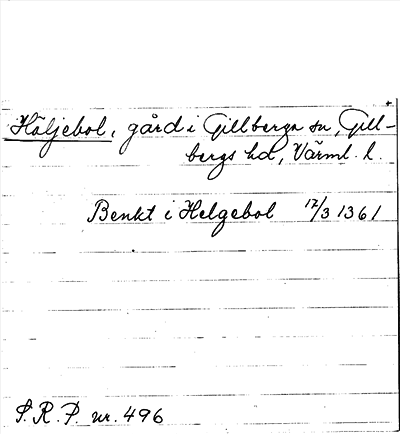 Häljebol, gård i Gillberga sn, Gill-
bergs hd, Värml. l.
Benkt i Helgebol 17/3 1361
S.R.P. nr. 496